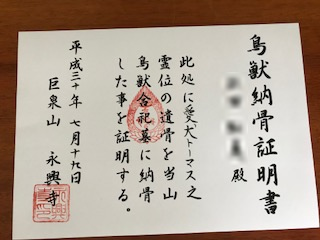 鳥獣納骨証明書
殿
此処に愛犬トーマス之
霊位の遺骨を当山
鳥獣合祀墓に納骨
した事を証明する。
平成三十年 七月十九日
巨泉山 永興寺